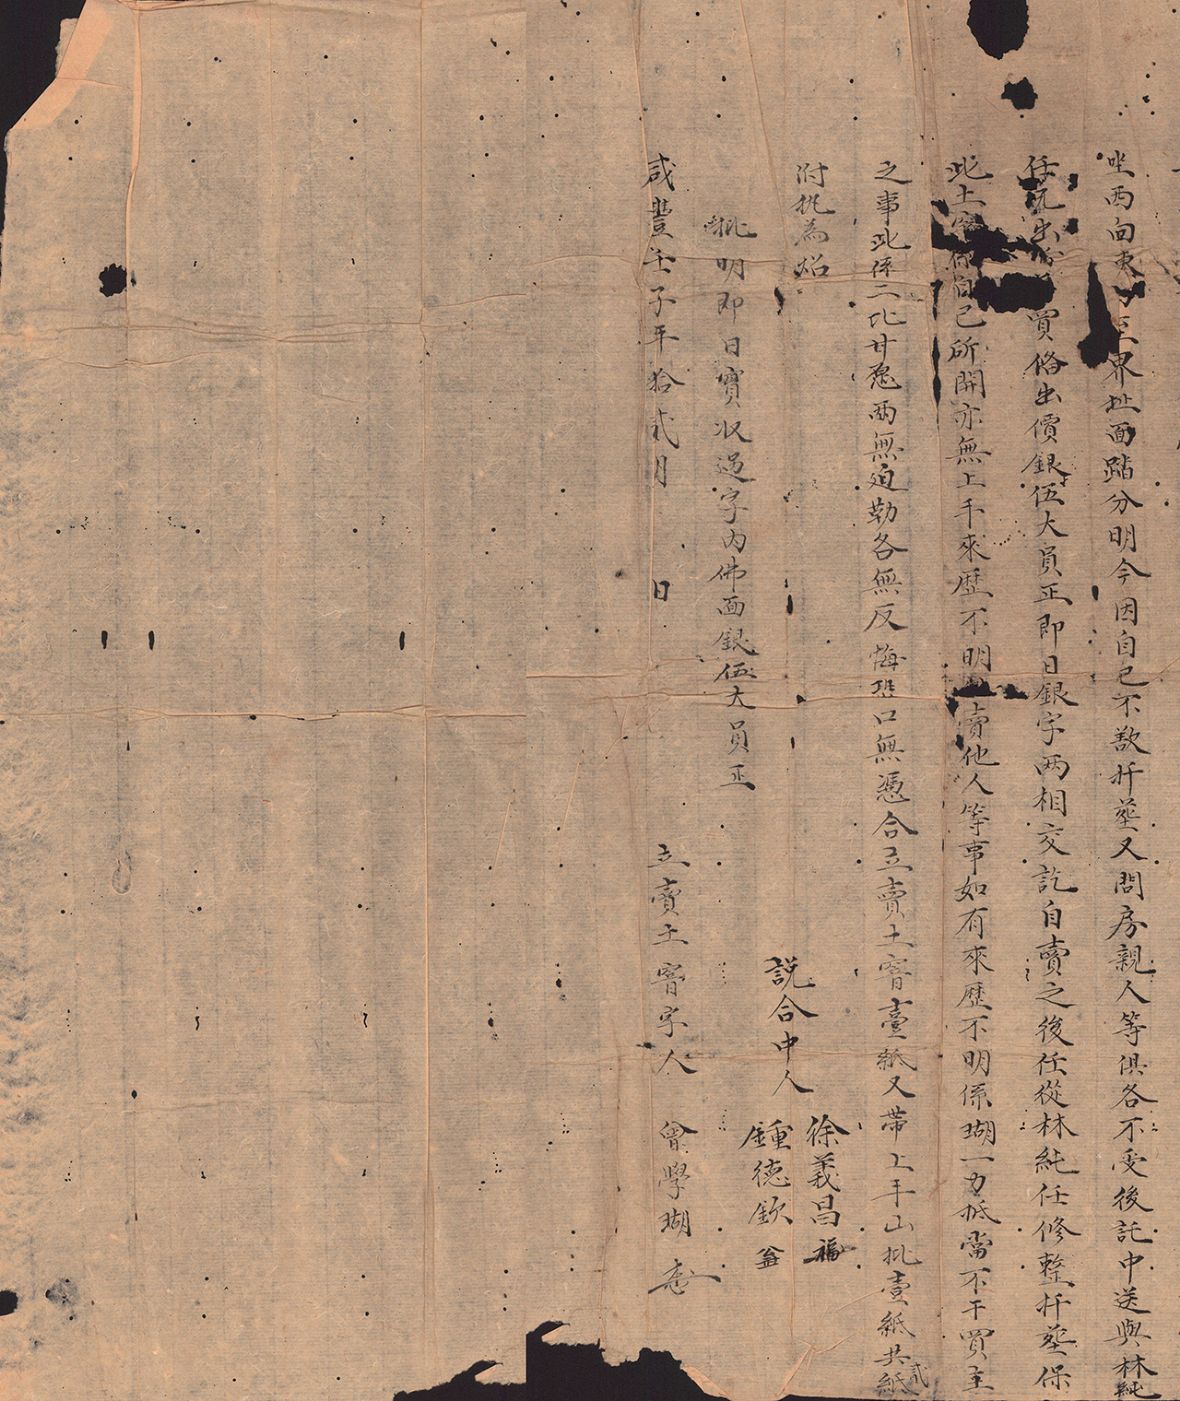 坐西向東四至界址面踏分明今因自己不欲扦塟又問房親人等俱各不受後託中送與林純
任荒出首承買俻出價銀伍大員正即日銀字兩相交訖自賣之後任從林純任修整扦塟保
此土窨係自己所開亦無上手來歷不明賣他人等事如有來歷不明係瑚一力抵當不干買主
之事此係二比甘愿兩無迫勒各無反悔恐口無憑合立賣土窨壹紙又帶上手山批壹紙共紙貳
附執為炤
批明即日實收過字內佛面銀伍大員正
說合中人 徐義昌
鍾德欽
咸豐壬子年拾貳月 日 立賣土窨字人 曾學瑚